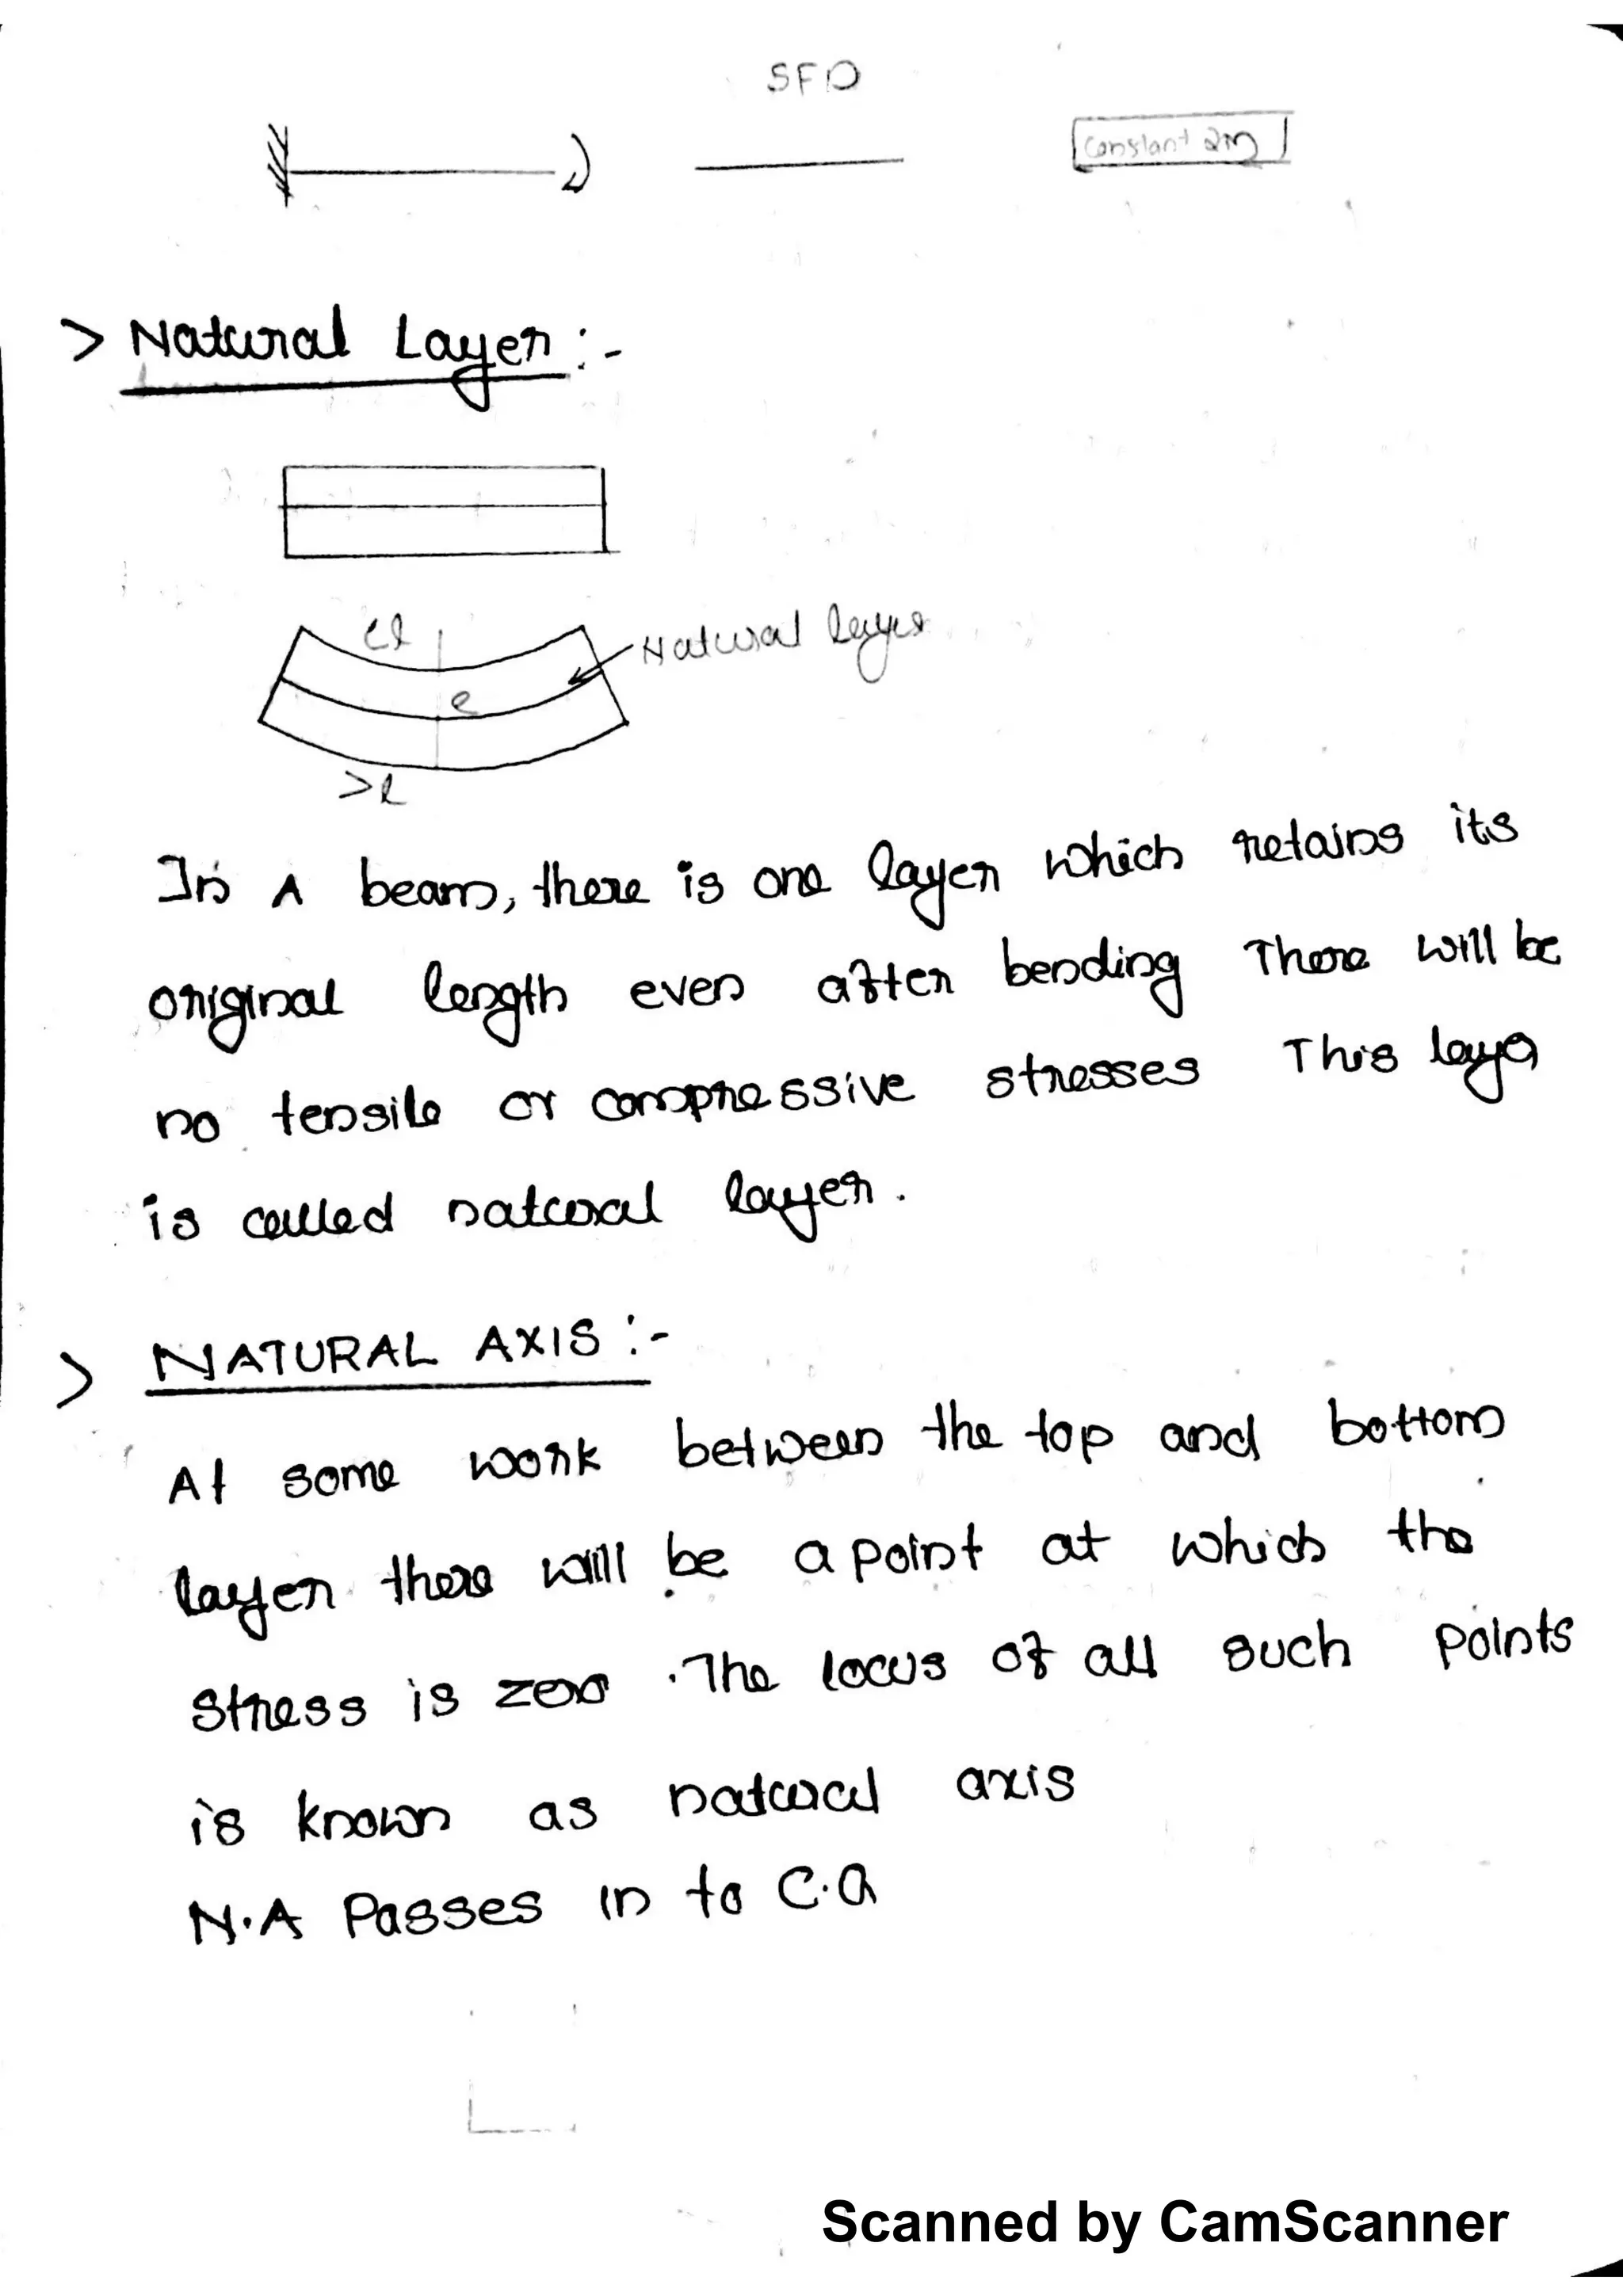 SFD
Constant
> Natural Layer :-
<l
Natural layer
l
>l
In A beam, there is one layer which retains its
original length even after bending There will be
no tensile or compressive stresses This layer
is called natural layer.
> NATURAL AXIS :-
At some work between the top and bottom
layer there will be a point at which the
stress is zero . The locus of all such points
is known as natural axis
N.A Passes in to C.G
Scanned by CamScanner